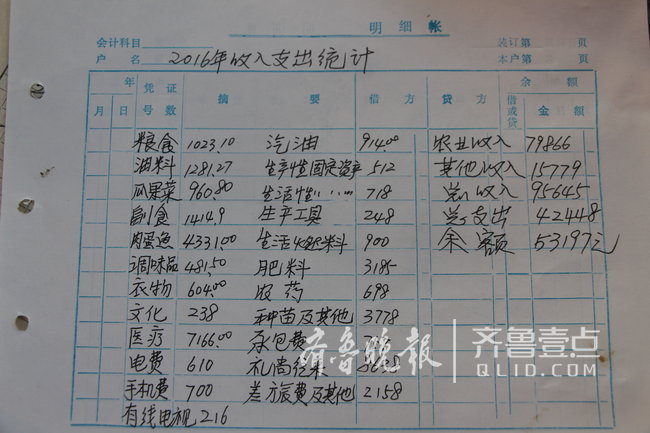 明细帐
会计科目 装订第 页
户名 2016年收入支出统计 本户第 页
年 凭证 摘要 借方 贷方 借或贷 余额
月 日 号数 金额
粮食 1023.10 汽油 914.00 农业收入 79866
油料 1281.27 生产性固定资产 512 其他收入 15779
瓜果菜 960.80 生活性〃〃〃〃 718 总收入 95645
副食 1414.9 生产工具 248 总支出 42448
肉蛋鱼 4331.00 生活燃料 900 余额 53197元
调味品 481.50 肥料 3185
衣物 604.00 农药 698
文化 238 种苗及其他 3778
医疗 7166.00 承包费
电费 610 礼尚往来
手机费 700 差旅费及其他 2158
有线电视 216
齐鲁晚报 齐鲁壹点
QLID.COM